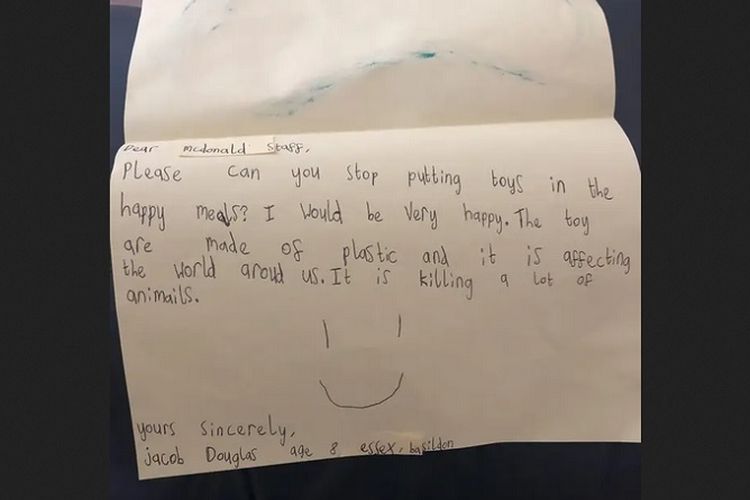 Dear mcdonald staff,
Please can you stop putting toys in the
happy meals? I would be very happy. The toy
are made of plastic and it is affecting
the world aroud us. It is killing a lot of
animails.
yours sincerely,
jacob Douglas age 8 essex, basildon